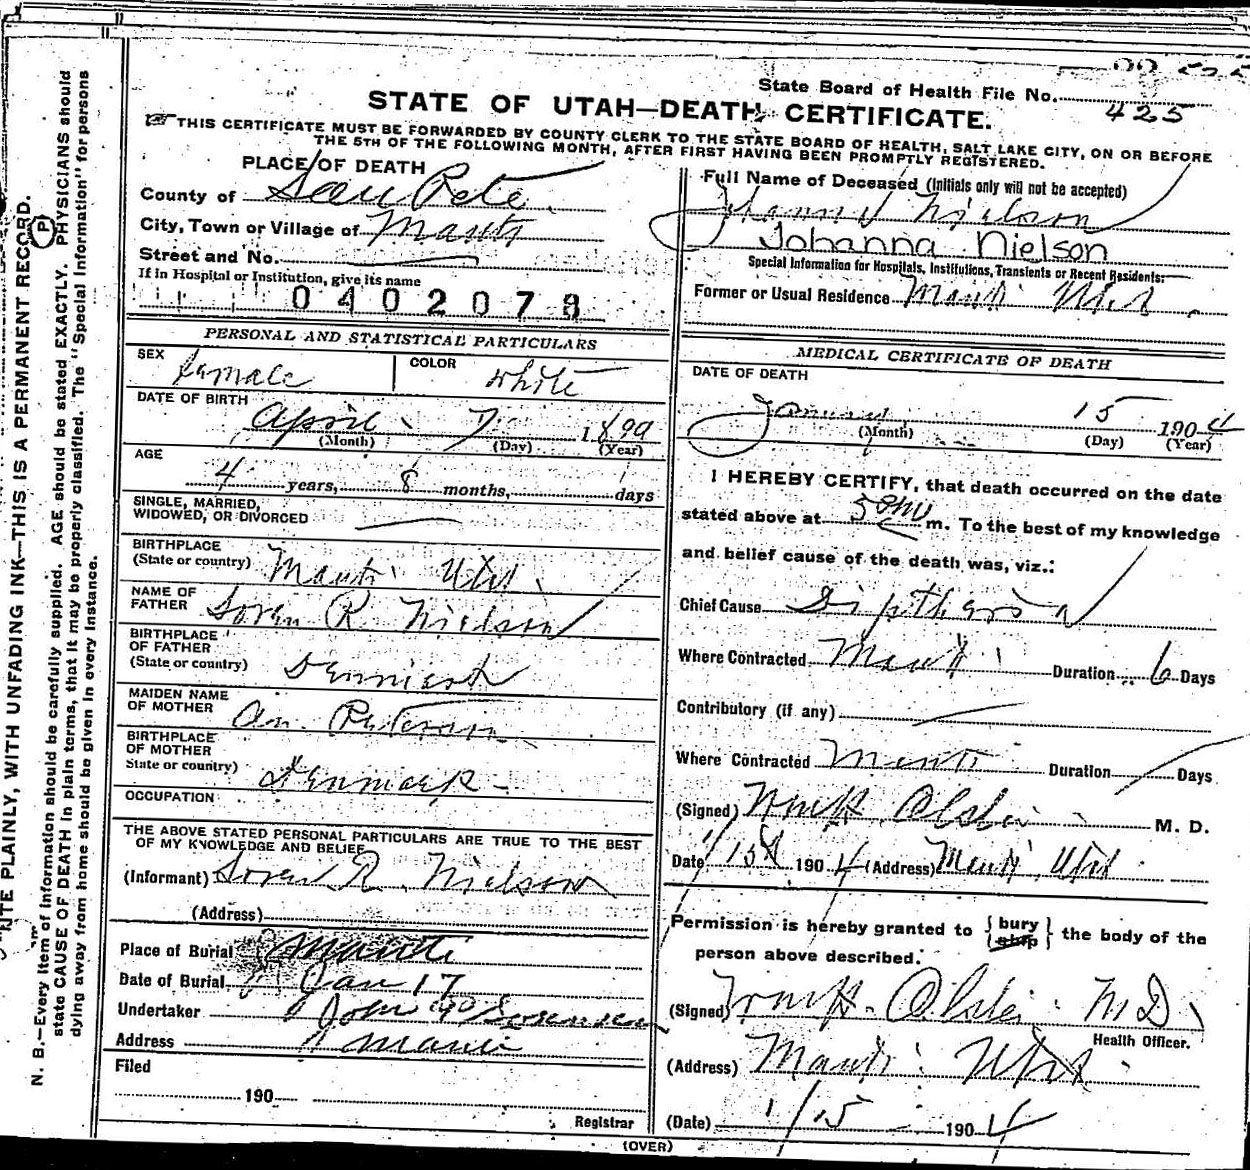 State Board of Health File No. 425
STATE OF UTAH—DEATH CERTIFICATE.
THIS CERTIFICATE MUST BE FORWARDED BY COUNTY CLERK TO THE STATE BOARD OF HEALTH, SALT LAKE CITY, ON OR BEFORE
THE 5TH OF THE FOLLOWING MONTH, AFTER FIRST HAVING BEEN PROMPTLY REGISTERED.
PLACE OF DEATH
County of San Pete
City, Town or Village of Manti
Street and No.
If in Hospital or Institution, give its name
0402078
Full Name of Deceased (Initials only will not be accepted)
Nielson
Johanna Nielson
Special Information for Hospitals, Institutions, Transients or Recent Residents:
Former or Usual Residence Manti Utah
PERSONAL AND STATISTICAL PARTICULARS
SEX Female COLOR White
DATE OF BIRTH
April 7 1899
(Month) (Day) (Year)
AGE
4 years, 8 months, days
SINGLE, MARRIED,
WIDOWED, OR DIVORCED
BIRTHPLACE
(State or country) Manti Utah
NAME OF
FATHER Soren R. Nielson
BIRTHPLACE
OF FATHER
(State or country) Denmark
MAIDEN NAME
OF MOTHER An. Peterson
BIRTHPLACE
OF MOTHER
State or country) Denmark
OCCUPATION
THE ABOVE STATED PERSONAL PARTICULARS ARE TRUE TO THE BEST
OF MY KNOWLEDGE AND BELIEF
(Informant) Soren R. Nielson
(Address)
Place of Burial Manti
Date of Burial Jan 17
Undertaker John
Address Manti
Filed
190
Registrar
MEDICAL CERTIFICATE OF DEATH
DATE OF DEATH
January 15 1904
(Month) (Day) (Year)
I HEREBY CERTIFY, that death occurred on the date
stated above at 5 m. To the best of my knowledge
and belief cause of the death was, viz.:
Chief Cause Diptheria
Where Contracted Manti Duration 6 Days
Contributory (if any)
Where Contracted Manti Duration Days
(Signed) M. D.
Date 1/15 1904 (Address) Manti Utah
Permission is hereby granted to { bury ship } the body of the
person above described.
(Signed) M D.
Health Officer.
(Address) Manti Utah
(Date) 1/15 1904
(OVER)
WRITE PLAINLY, WITH UNFADING INK—THIS IS A PERMANENT RECORD.
P
N. B.—Every item of information should be carefully supplied. AGE should be stated EXACTLY. PHYSICIANS should
state CAUSE OF DEATH in plain terms, that it may be properly classified. The "Special Information" for persons
dying away from home should be given in every instance.